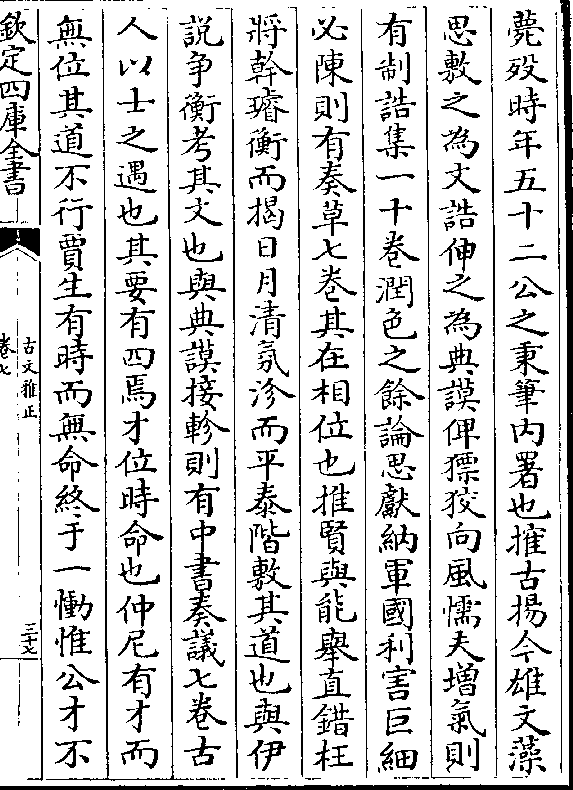 薨歿時年五十二公之秉筆内署也搉古揚今雄文藻
思敷之為文誥伸之為典謨俾獷狡向風懦夫增氣則
有制誥集一十卷潤色之餘論思獻納軍國利害巨細
必陳則有奏草七卷其在相位也推賢與能舉直錯枉
將幹璿衡而揭日月清氛沴而平泰階敷其道也與伊
説争衡考其文也與典謨接軫則有中書奏議七卷古
人以士之遇也其要有四焉才位時命也仲尼有才而
無位其道不行賈生有時而無命終于一慟惟公才不
欽定四庫全書
古文雅正
卷七
三十七